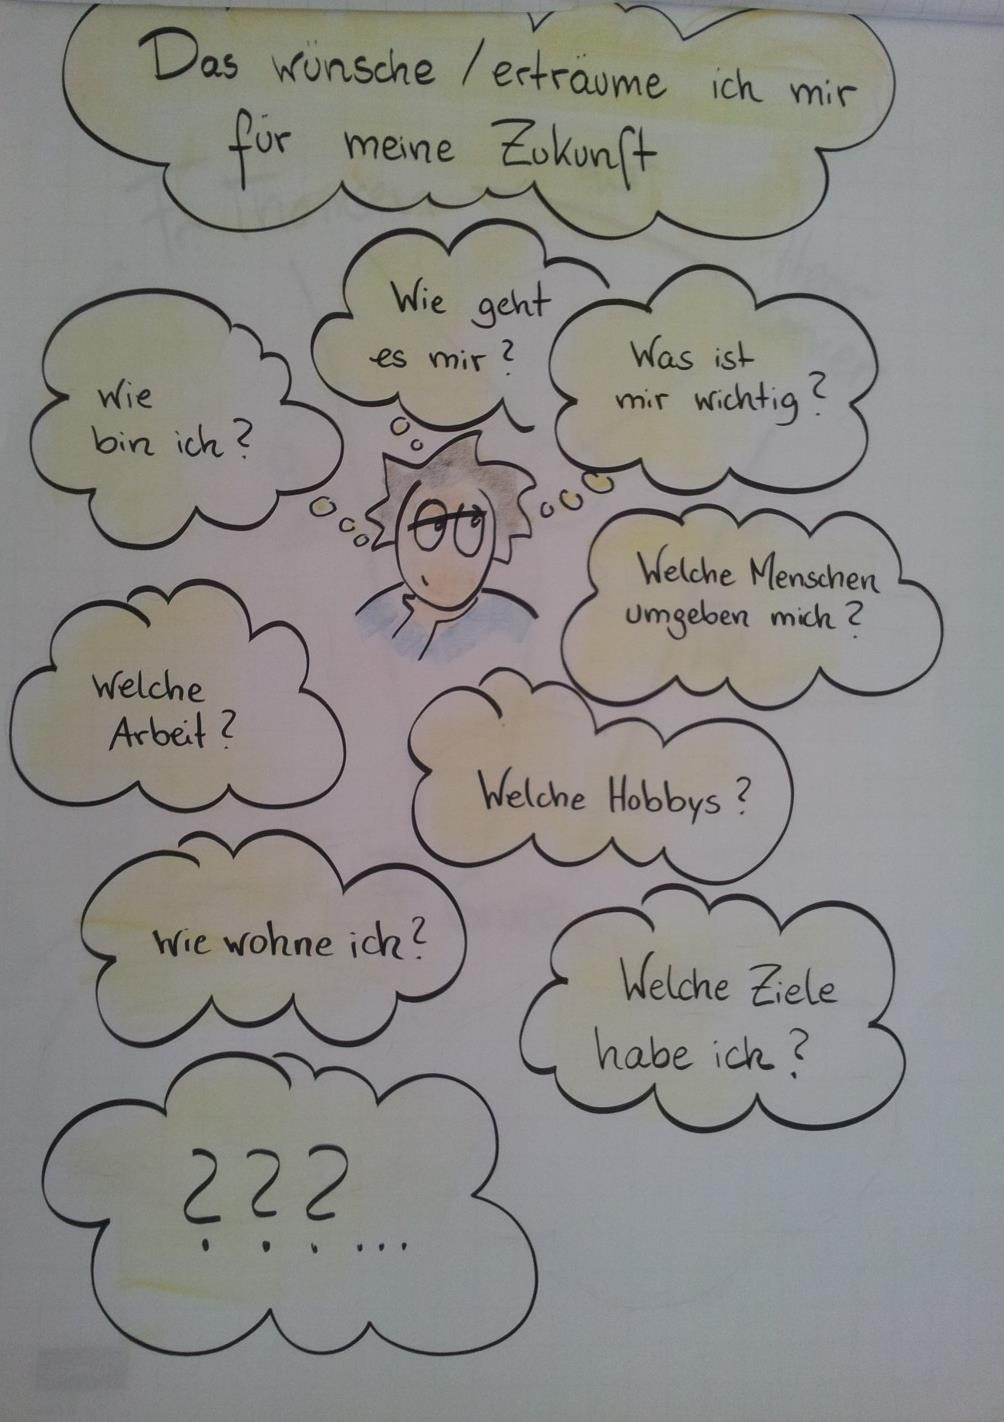 Das wünsche / erträume ich mir
für meine Zukunft
Wie geht
es mir?
Wie
bin ich?
Was ist
mir wichtig?
Welche Menschen
umgeben mich?
Welche
Arbeit?
Welche Hobbys?
Wie wohne ich?
Welche Ziele
habe ich?
???...